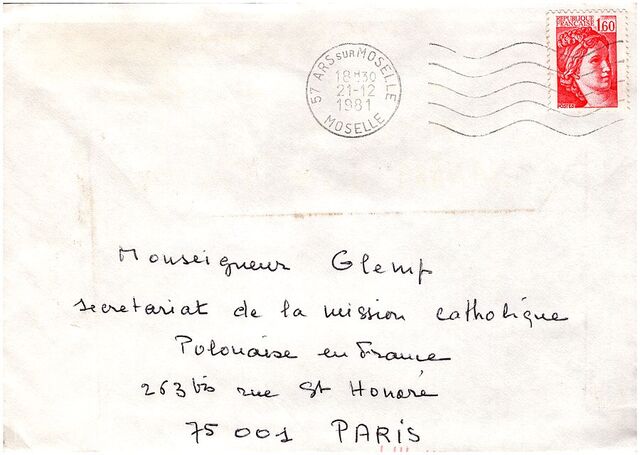 RÉPUBLIQUE
FRANÇAISE
1,60
POSTES
57 ARS SUR MOSELLE
18H30
21-12
1981
MOSELLE
Monseigneur Glemp
secretariat de la mission catholique
Polonaise en France
263 bis rue St Honoré
75 001 PARIS